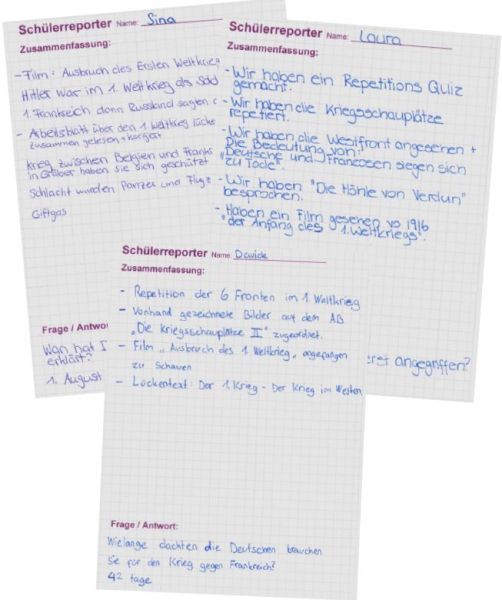 Schülerreporter Name: Sina
Zusammenfassung:
- Film: Ausbruch des Ersten Weltkrieg
Hitler war im 1. Weltkrieg als Sold
1. Frankreich dann Russland sagten
- Arbeitsblatt über den 1 Weltkrieg lücke
zusammen gelesen + korrigiert
Krieg zwischen Belgien und Frank
In Gräber haben sie sich geschützt
Schlacht wurden Panzer und Flugz
Giftgas
Frage / Antwor
Wan hat
erklärt?
1. August
Schülerreporter Name: Laura
Zusammenfassung:
- Wir haben ein Repetitions Quiz
gemacht.
- Wir haben die Kriegsschauplätze
repetiert.
- Wir haben die Westfront angesehen +
Die Bedeutung von:
"Deutsche und Franzosen siegen sich
zu Tode".
- Wir haben "Die Höhle von Verdun"
besprochen.
- Haben ein Film gesehen vo 1916
"der Anfang des 1. Weltkriegs".
angegriffen?
Schülerreporter Name: Davide
Zusammenfassung:
- Repetition der 6 Fronten im 1. Weltkrieg
- Vonhand gezeichnete Bilder auf dem AB
"Die Kriegsschauplätze II" zugeordnet.
- Film "Ausbruch des 1 Weltkrieg" angefangen
zu schauen
- Lückentext: Der 1. Krieg - Der Krieg im Westen
Frage / Antwort:
Wielange dachten die Deutschen brauchen
Sie für den Krieg gegen Frankreich?
42 tage